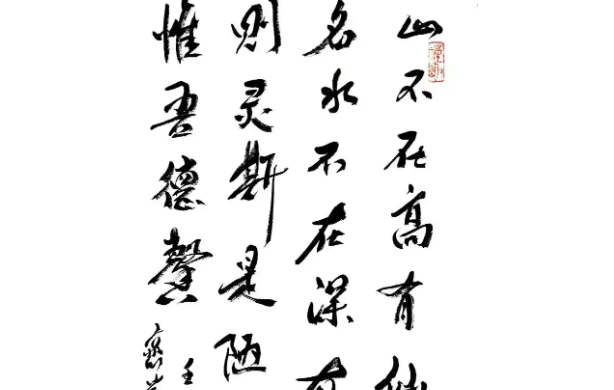 山不在高有仙
名水不在深有
则灵斯是陋
惟吾德馨